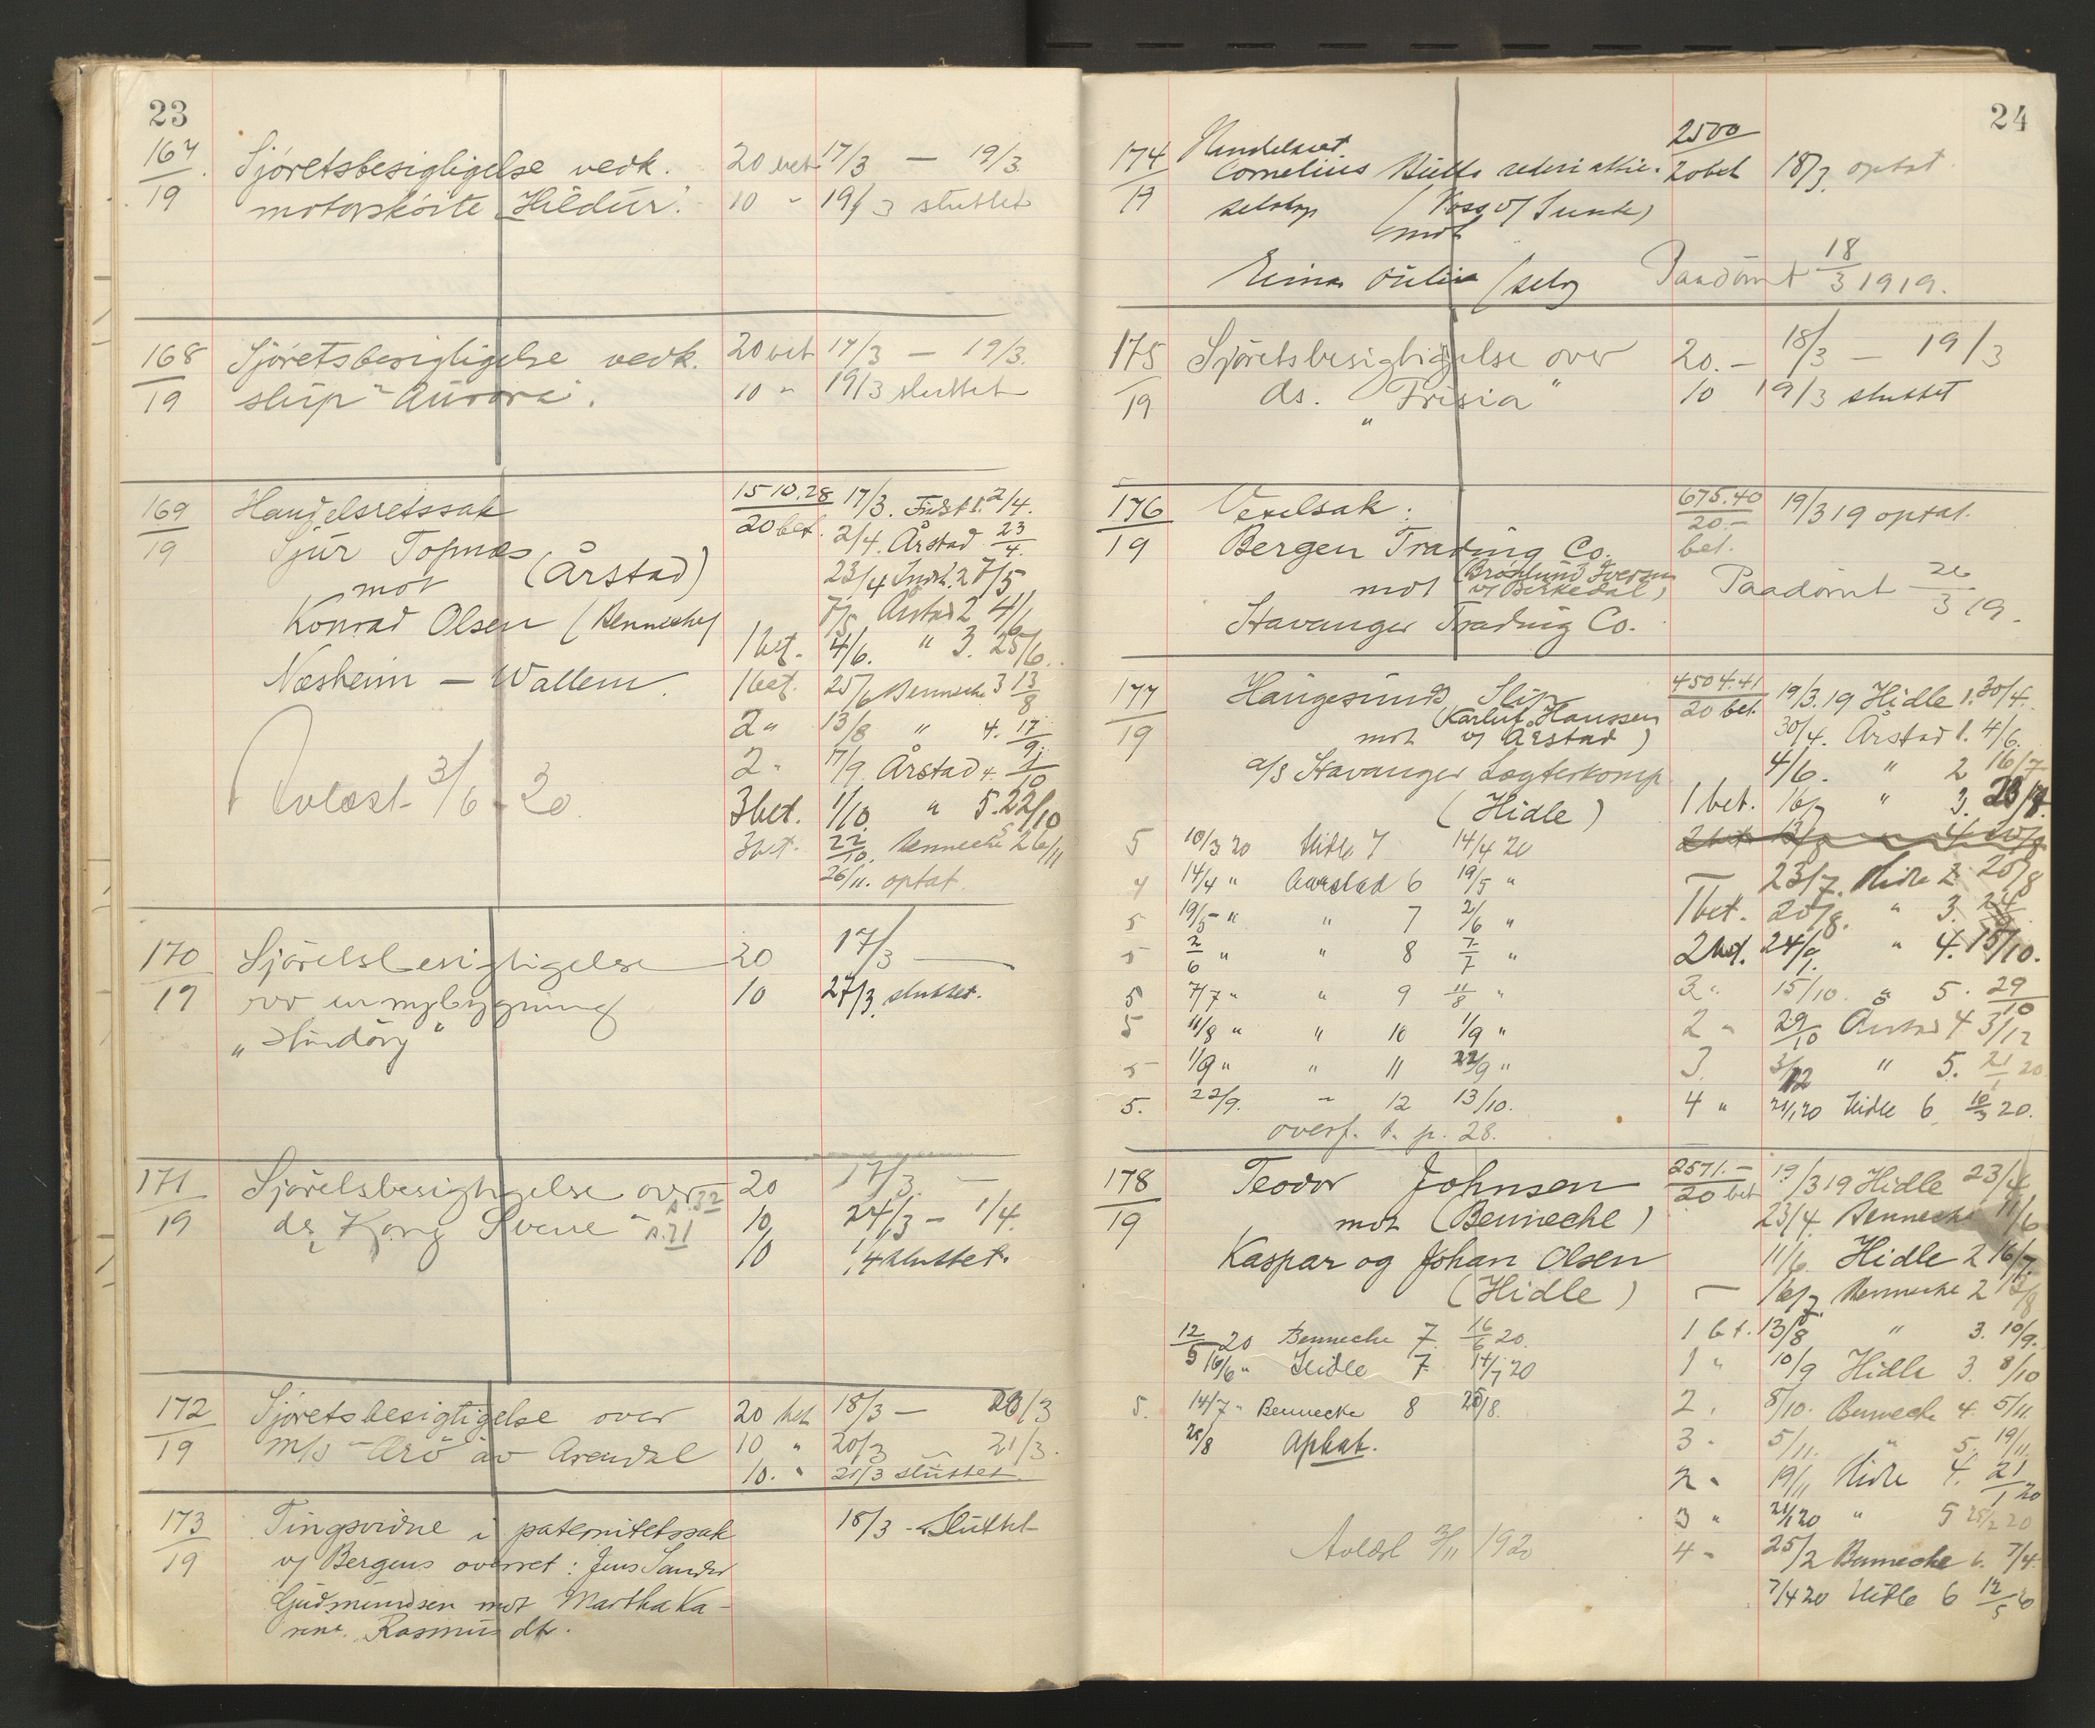 23
167/19 Sjöretsbesigtigelse vedk. 20 bet 17/3 — 19/3.
motorsköite "Hildur". 10 " 19/3 sluttet
168/19 Sjöretsbesigtigelse vedk. 20 bet 17/3 — 19/3.
slup "Aurora". 10 " 19/3 sluttet
169/19 Handelsretssak 1510.28 17/3. 2/4.
Sjur Topnæs 20 bet. 2/4. Årstad 23/4.
mot (Årstad) 23/4 2 7/5
Konrad Olsen (Bennecke) 7/5 Årstad 2 4/6
1 bet. 4/6. " 3. 25/6.
Næsheim — Wallem. 1 bet. 25/6 Bennecke 3 13/8
2 " 13/8 " 4. 17/9
2 " 17/9. Årstad 4. 1/10
Avlæst 3/6 - 20. 3 bet. 1/10. " 5. 22/10
3 bet. 22/10. Bennecke 5 26/11
26/11. optat.
170/19 Sjöretsbesigtigelse 20 17/3 —
over en nybygning 10 27/3. sluttet.
171/19 Sjöretsbesigtigelse over s. 32 20 17/3. —
ds. "Kong Sverre" s. 71 10, 24/3 — 1/4.
10 1/4 sluttet.
172/19 Sjöretsbesigtigelse over 20 bet 18/3 — 20/3
m/s "Arö" av Arendal 10 " 20/3 — 21/3.
10. " 21/3 sluttet
173/19 Tingsvidne i paternitetssak 18/3 - sluttet
v/ Bergens overret: Jens Sander
Gudmundsen mot Martha Ka-
rine Rasmusdtr.
24
174/19 Handelsret 2500
Cornelius rederi aktie- 20 bet 18/3. optat
selskap (Voss v/ Sunde)
mot
Einar (selv) Paadömt 18/3 1919.
175/19 Sjöretsbesigtigelse over 20.— 18/3 — 19/3
ds. "Frisia" 10 19/3 sluttet
176/19 Vexelsak: 675.40 19/3 19 optat.
Bergen Trading Co. 20.— bet.
mot v/ Birkedal) Paadömt 26/3 19.
Stavanger Trading Co.
177/19 Haugesunds Slip 4504.41 19/3. 19 Hidle 1. 30/4.
(Karluf Hanssen 20 bet. 30/4. Årstad 1. 4/6.
mot v/ Årstad)
a/s Stavanger Lægterkomp. 4/6. " 2 16/7
(Hidle) 1 bet. 16/7 " 3. 23/7.
5 10/3 20 Hidle 7 14/4 20
4 14/4 " Aarstad 6 19/5 " — 23/7. Hidle 2 20/8
5 19/5 " " 7 2/6 " 1 bet. 20/8. " 3. 24/9
5 2/6 " " 8 7/7 " 2 bet. 24/9. " 4. 15/10.
5 7/7 " " 9 11/8 " 3 " 15/10. " 5. 29/10
5 11/8 " " 10 1/9 " 2 " 29/10 Årstad 4 3/12
5 1/9 " " 11 22/9 " 3. 3/12 " 5. 21/1 20
5. 22/9. " 12 13/10. 4 " 21/1 20 Hidle 6. 10/3 20.
overf. t. p. 28.
178/19 Teodor Johnsen 2571.— 19/3 19 Hidle 23/4
mot (Bennecke) 20 bet 23/4. Bennecke 11/6
Kaspar og Johan Olsen 11/6. Hidle 2 16/7.
(Hidle) — 16/7 Bennecke 2 13/8
12/5 20 Bennecke 7. 16/6 20. 1 bet. 13/8 " 3. 10/9.
16/6 " Hidle 7. 14/7 20 1 " 10/9 Hidle 3. 8/10
5. 14/7 " Bennecke 8 25/8. 2 " 8/10. Bennecke 4. 5/11.
25/8 Optat. 3 " 5/11. " 5. 19/11.
2 " 19/11 Hidle 4. 21/1 20
3 " 21/1 20 " 5 25/2 20
Avlæst 3/11 1920 4 " 25/2 Bennecke 6. 7/4.
7/4 20 Hidle 6 12/5 20